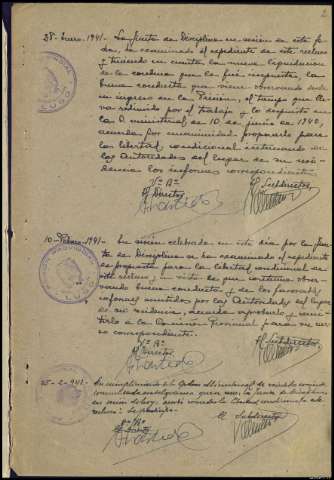 28-Enero-1941- La Junta de Disciplina en sesión de esta fe-
cha, ha examinado el expediente de este recluso
y teniendo en cuenta la nueva liquidación
de la condena que le fué impuesta, la
buena conducta que viene observando desde
su ingreso en la Prisión, el tiempo que lle-
va redimido por el trabajo y lo dispuesto en
la O. ministerial de 10 de junio de 1940,
acuerda por unanimidad proponerle para
la libertad condicional interesando de
las Autoridades del lugar de su resi-
dencia los informes correspondientes
Vº Bº
El Director
El Subdirector
LUGO
10-Febrero-1941- En sesión celebrada en este día por la Jun-
ta de Disciplina se ha examinado el expediente
de propuesta para la libertad condicional de
este recluso y en vista de que continua obser-
vando buena conducta y de los favorables
informes emitidos por las Autoridades del lugar
de su residencia, acuerda aprobarlo y remi-
tirlo a la Comisión Provincial para su curso
correspondiente.
Vº Bº
El Director
El Subdirector
LUGO
25-2-941-
En cumplimiento a la Orden Ministerial de
en sesión de hoy, la libertad condicional a este
recluso:
El Subdirector
Vº Bº
El Director